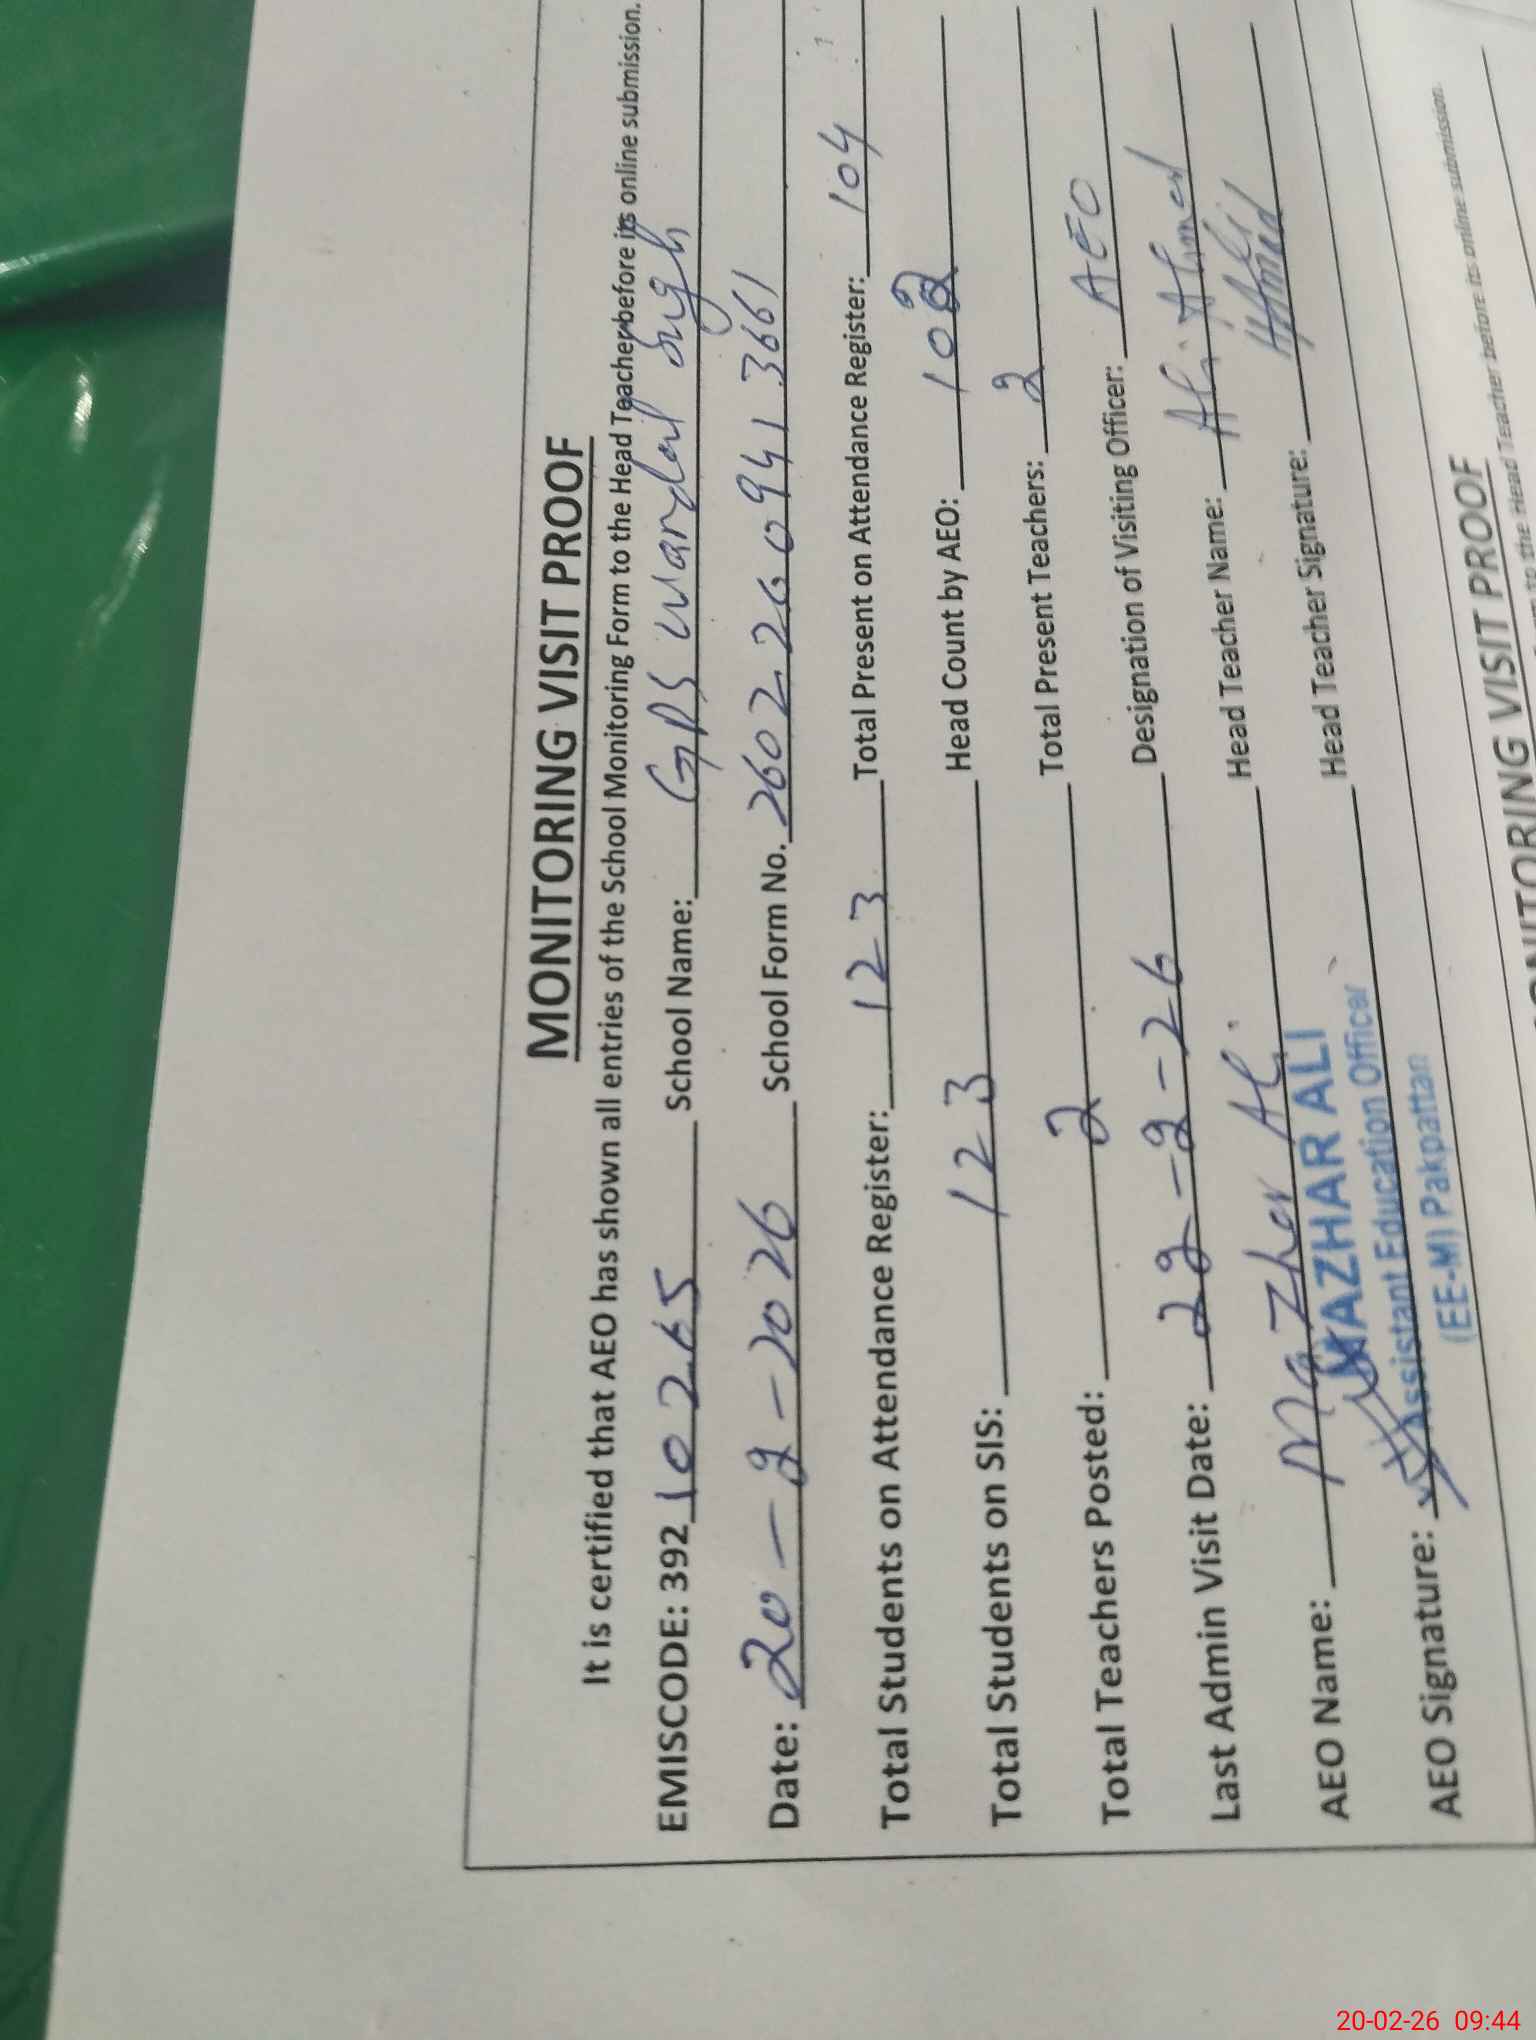 MONITORING VISIT PROOF
It is certified that AEO has shown all entries of the School Monitoring Form to the Head Teacher before its online submission.
EMISCODE: 392 10265 School Name: GPS
Date: 20-2-2026 School Form No. 26022609413661
Total Students on Attendance Register: 123 Total Present on Attendance Register: 104
Total Students on SIS: 123 Head Count by AEO: 102
Total Teachers Posted: 2 Total Present Teachers: 2
Last Admin Visit Date: Designation of Visiting Officer: AEO
AEO Name: Mazhar Ali Head Teacher Name: Ali Ahmed
MAZHAR ALI
AEO Signature: Head Teacher Signature: Ali Ahmed
Assistant Education Officer
(EE-M) Pakpattan
MONITORING VISIT PROOF
to the Head Teacher before its online submission.
MONITORING VISIT PROOF
20-02-26 09:44